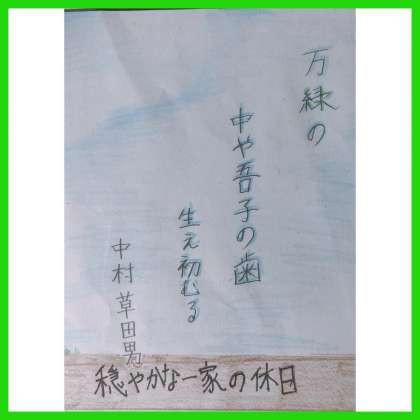 万緑の
中や吾子の歯
生え初むる
中村草田男
穏やかな一家の休日